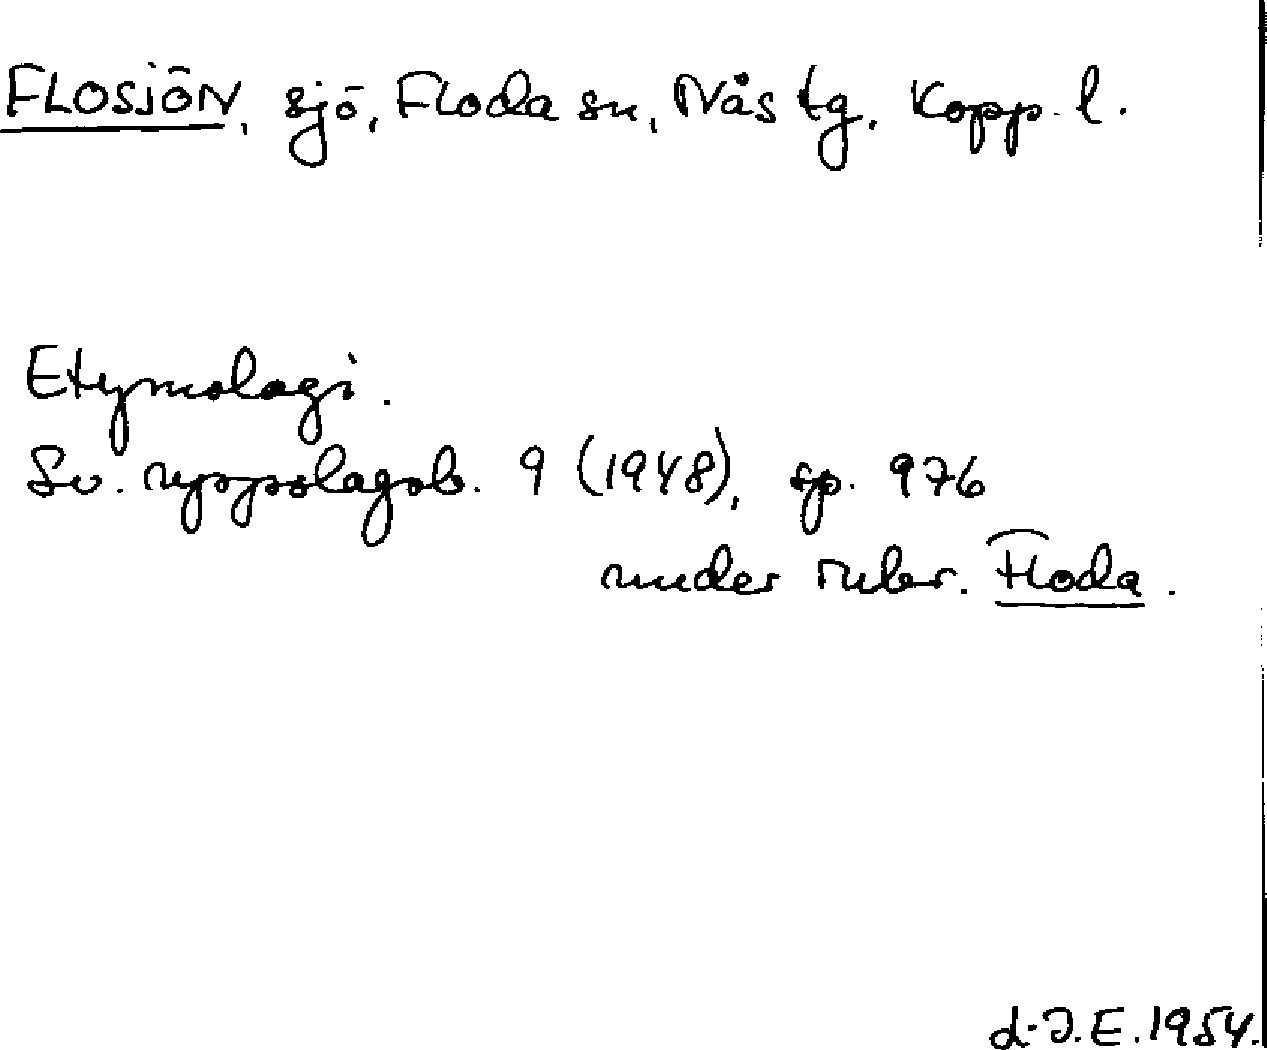 FLOSJÖN, sjö, Floda sn, Nås tg, Kopp. l.
Etymologi.
Sv. uppslagsb. 9 (1948), sp. 976
under rubr. Floda.
L-J.E. 1954.